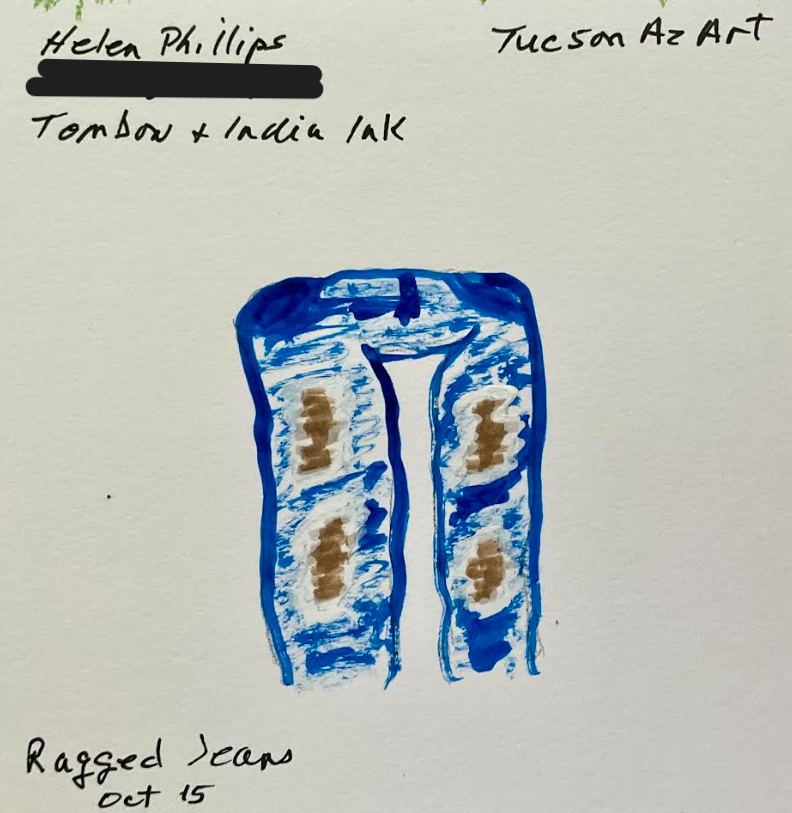 Helen Phillips
Tucson Az Art
Tombow + India Ink
Ragged Jeans
Oct 15